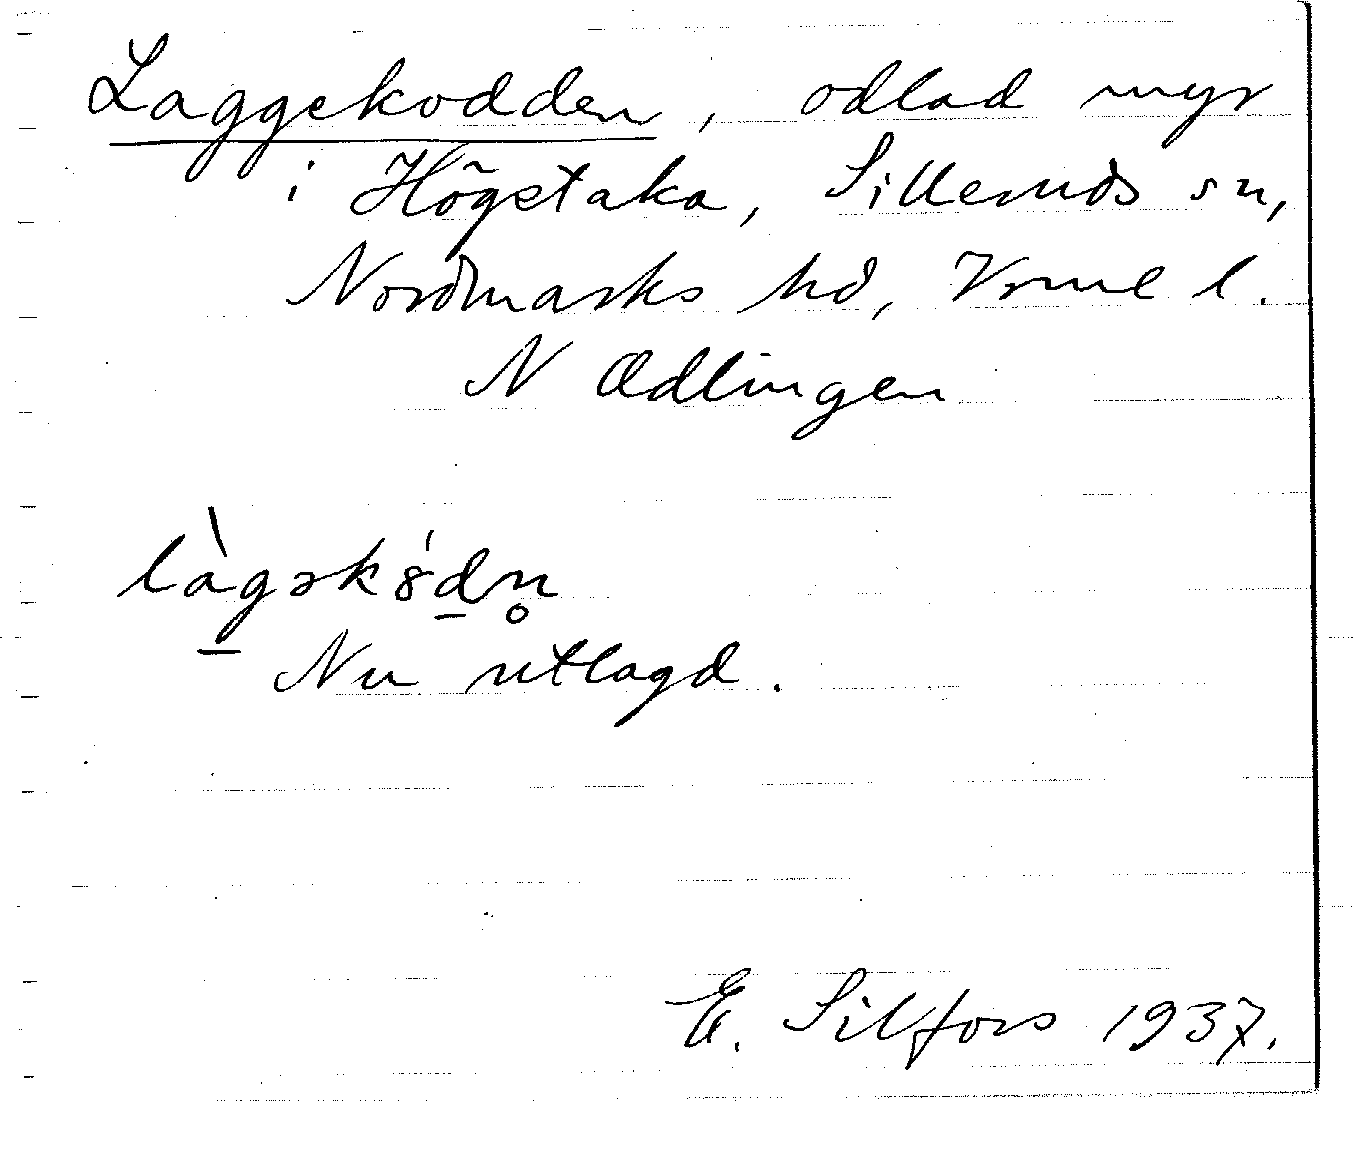 Laggekodden, odlad myr
i Högstaka, Silleruds sn,
Nordmarks hd, Vrml l.
N Ædlingen
làgəkȣ́dn̥
Nu utlagd.
E. Silfors 1937.